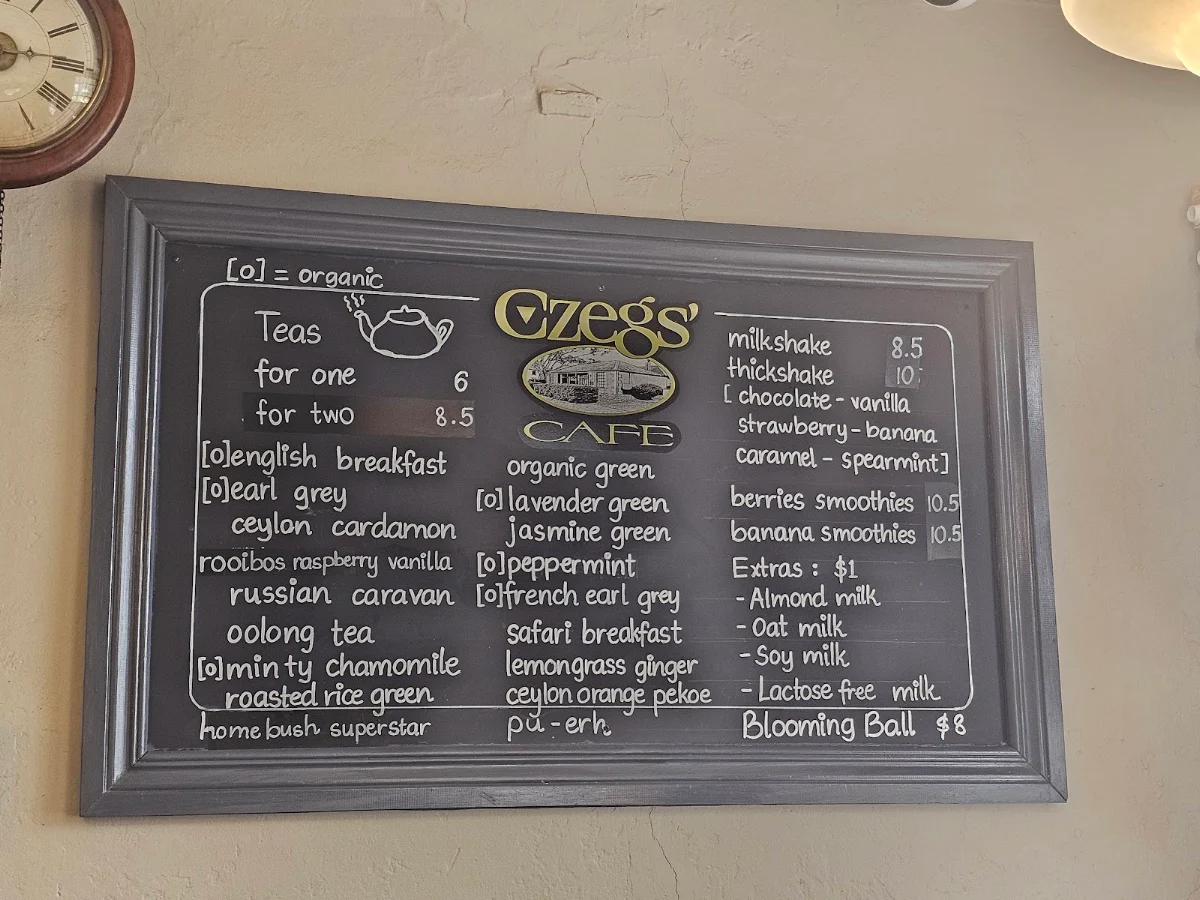 [o] = organic
Teas
for one 6
for two 8.5
[o]english breakfast
[o]earl grey
ceylon cardamon
rooibos raspberry vanilla
russian caravan
oolong tea
[o]minty chamomile
roasted rice green
homebush superstar
Czegs'
CAFE
organic green
[o] lavender green
jasmine green
[o]peppermint
[o]french earl grey
safari breakfast
lemongrass ginger
ceylon orange pekoe
pu-erh
milkshake 8.5
thickshake 10
[ chocolate - vanilla
strawberry - banana
caramel - spearmint]
berries smoothies 10.5
banana smoothies 10.5
Extras : $1
- Almond milk
- Oat milk
- Soy milk
- Lactose free milk
Blooming Ball $8